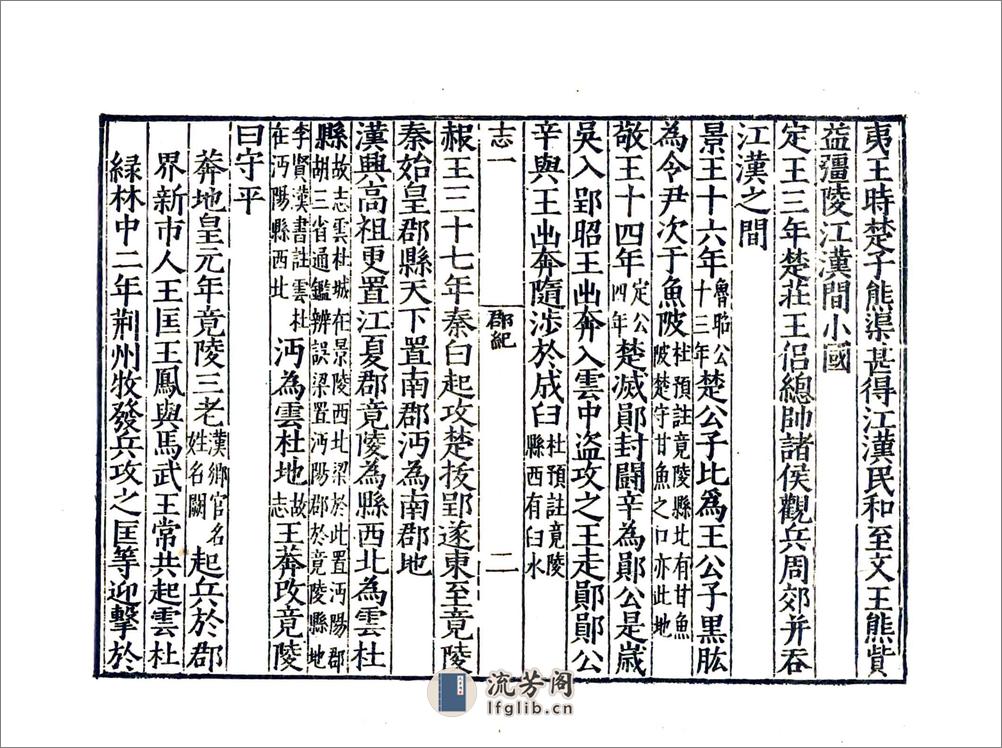 夷王時楚子熊渠甚得江漢民和至文王熊貲
益彊陵江漢間小國
定王三年楚莊王侶總帥諸侯觀兵周郊并吞
江漢之間
景王十六年魯昭公十三年楚公子比爲王公子黑肱
為令尹次于魚陂杜預註竟陵縣北有甘魚陂楚守甘魚之口亦此地
敬王十四年定公四年楚滅鄖封鬪辛為鄖公是歲
吳入郢昭王出奔入雲中盜攻之王走鄖鄖公
辛與王出奔隨涉於成臼杜預註竟陵縣西有臼水
志一 郡紀 二
赧王三十七年秦白起攻楚拔郢遂東至竟陵
秦始皇郡縣天下置南郡沔為南郡地
漢興高祖更置江夏郡竟陵為縣西北為雲杜
縣故志雲杜城在景陵西北梁於此置沔陽郡胡三省通鑑辨誤梁置沔陽郡於竟陵縣地
李賢漢書註雲杜在沔陽縣西北沔為雲杜地故志王莽改竟陵
曰守平
莽地皇元年竟陵三老漢鄉官名姓名闕起兵於郡
界新市人王匡王鳳與馬武王常共起雲杜
綠林中二年荊州牧發兵攻之匡等迎擊於
流芳阁
lfglib.cn